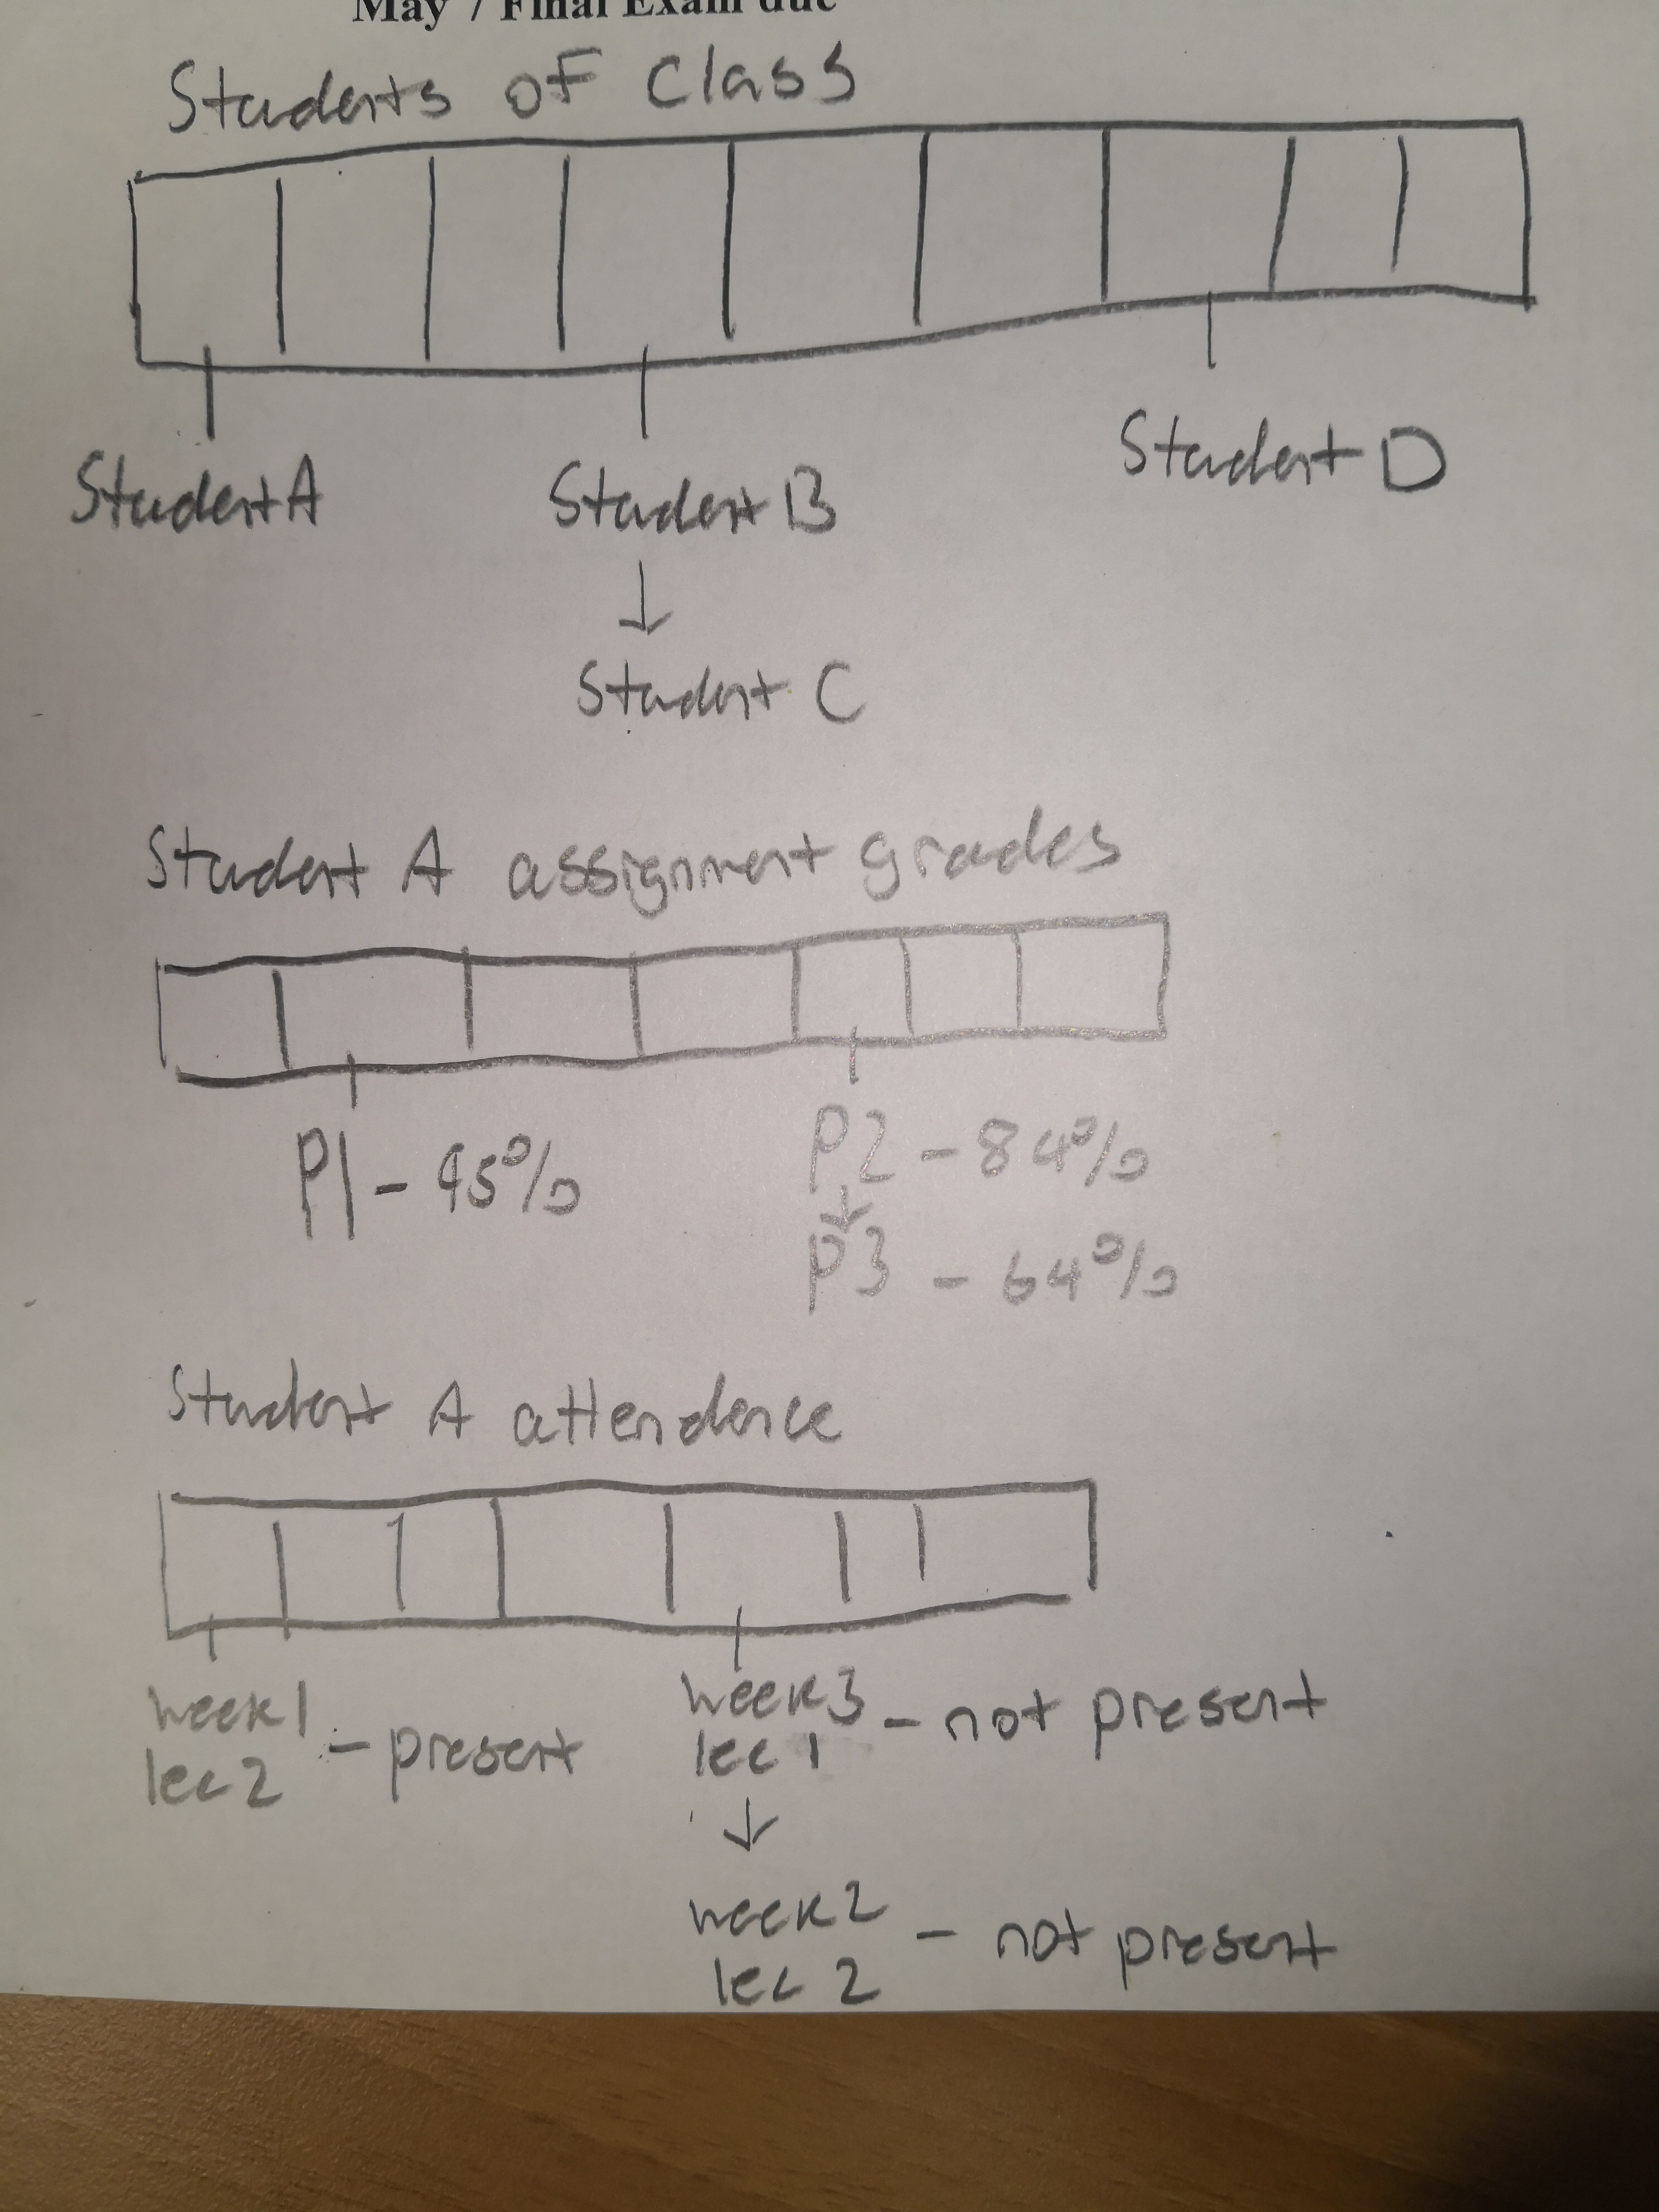 May 7 Final Exam due
Students of Class
Student A Student B Student D
↓
Student C
Student A assignment grades
P1 - 95% P2 - 84%
↓
P3 - 64%
Student A attendence
week1 week3
lec 2 - present lec 1 - not present
↓
week2
lec 2 - not present